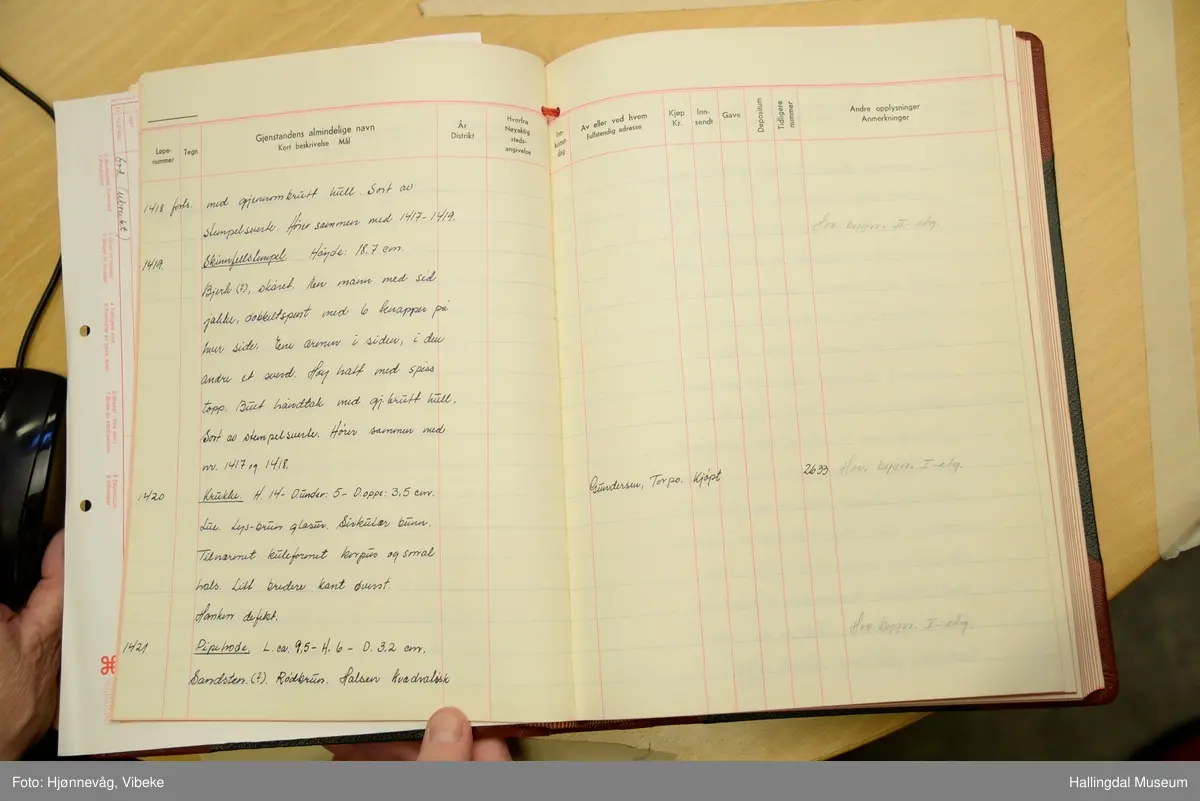 Løpe-nummer
Tegn
Gjenstandens almindelige navn
Kort beskrivelse Mål
År
Distrikt
Hvorfra
Nøyaktig
steds-
angivelse
Av eller ved hvem
Fullstendig adresse
Kjøp
Kr.
Inn-
sendt
Gave
Depositum
Tidligere
nummer
Andre opplysninger
Anmerkninger
1418 forts. med gjennombrutt hull. Sort av
stempelsverte. Hører sammen med 1417-1419.
Hov. bygn. II-etg.
1419. Skinnfellstempel. Høyde: 18,7 cm.
Bjerk (?), skåret. Een mann med sid
jakke, dobbeltspent med 6 knapper på
hver side. Ene armen i siden, i den
andre et sverd. Høy hatt med spiss
topp. Buet håndtak med gj.brutt hull.
Sort av stempelsverte. Hører sammen med
nr. 1417 og 1418.
1420 Krukke. H. 14- D.under: 5- D.oppe: 3.5 cm.
Gundersen, Torpo. Kjøpt 2633 Hov. bygn. I-etg.
Lue. Lys-brun glasur. Sirkulær bunn.
Tilnærmet kuleformet korpus og smal
hals. Litt bredere kant øverst.
Hanken defekt.
1421 Pipehode. L. ca. 9,5- H. 6 - D. 3.2 cm.
Hov. bygn. II-etg.
Sandsten (?). Rødbrun. Halsen kvadratisk
Foto: Hjønnevåg, Vibeke
Hallingdal Museum